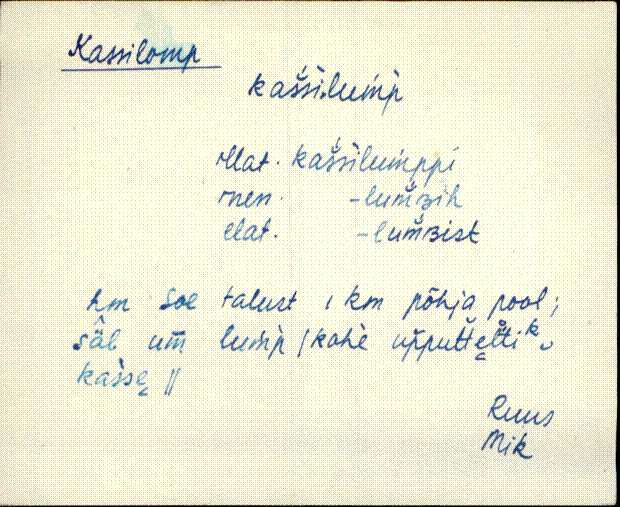 Kassilomp
kaššilum̀p
illat. kaššilum̀ppi
inen. -lum̆ʙih
elat. -lum̆ʙist
hm Soe talust 1 km põhja pool;
säl um̄ lum̀p /kohe
kasse̬ //
Ruus
Mik